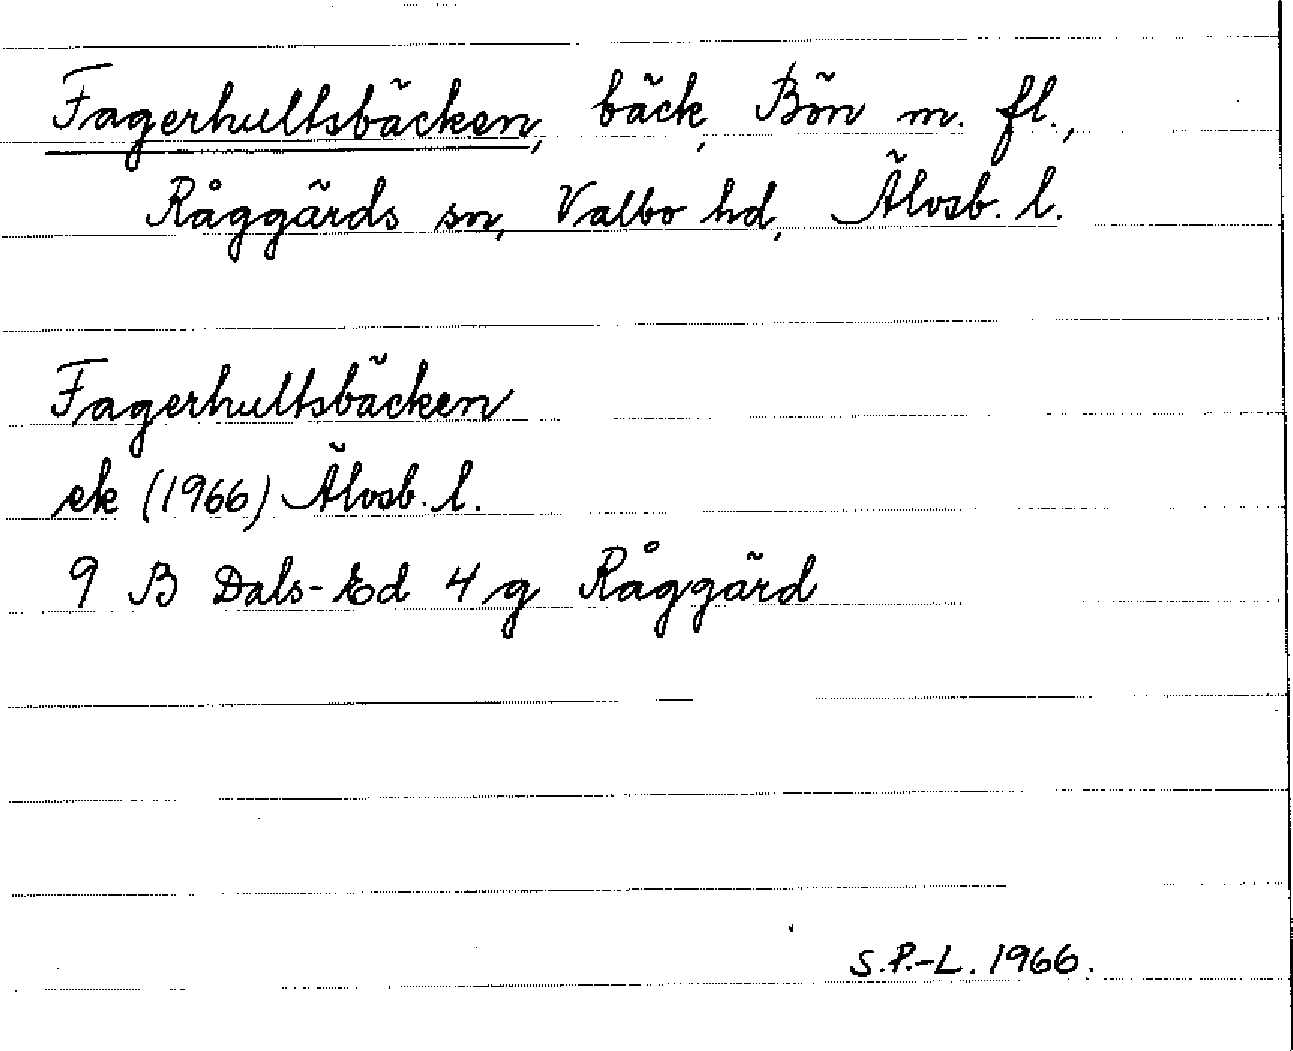 Fagerhultsbäcken, bäck, Bön m. fl.,
Råggärds sn, Valbo hd, Älvsb. l.
Fagerhultsbäcken
ek (1966) Älvsb. l.
9 B Dals-Ed 4 g Råggärd
S.P.-L. 1966.